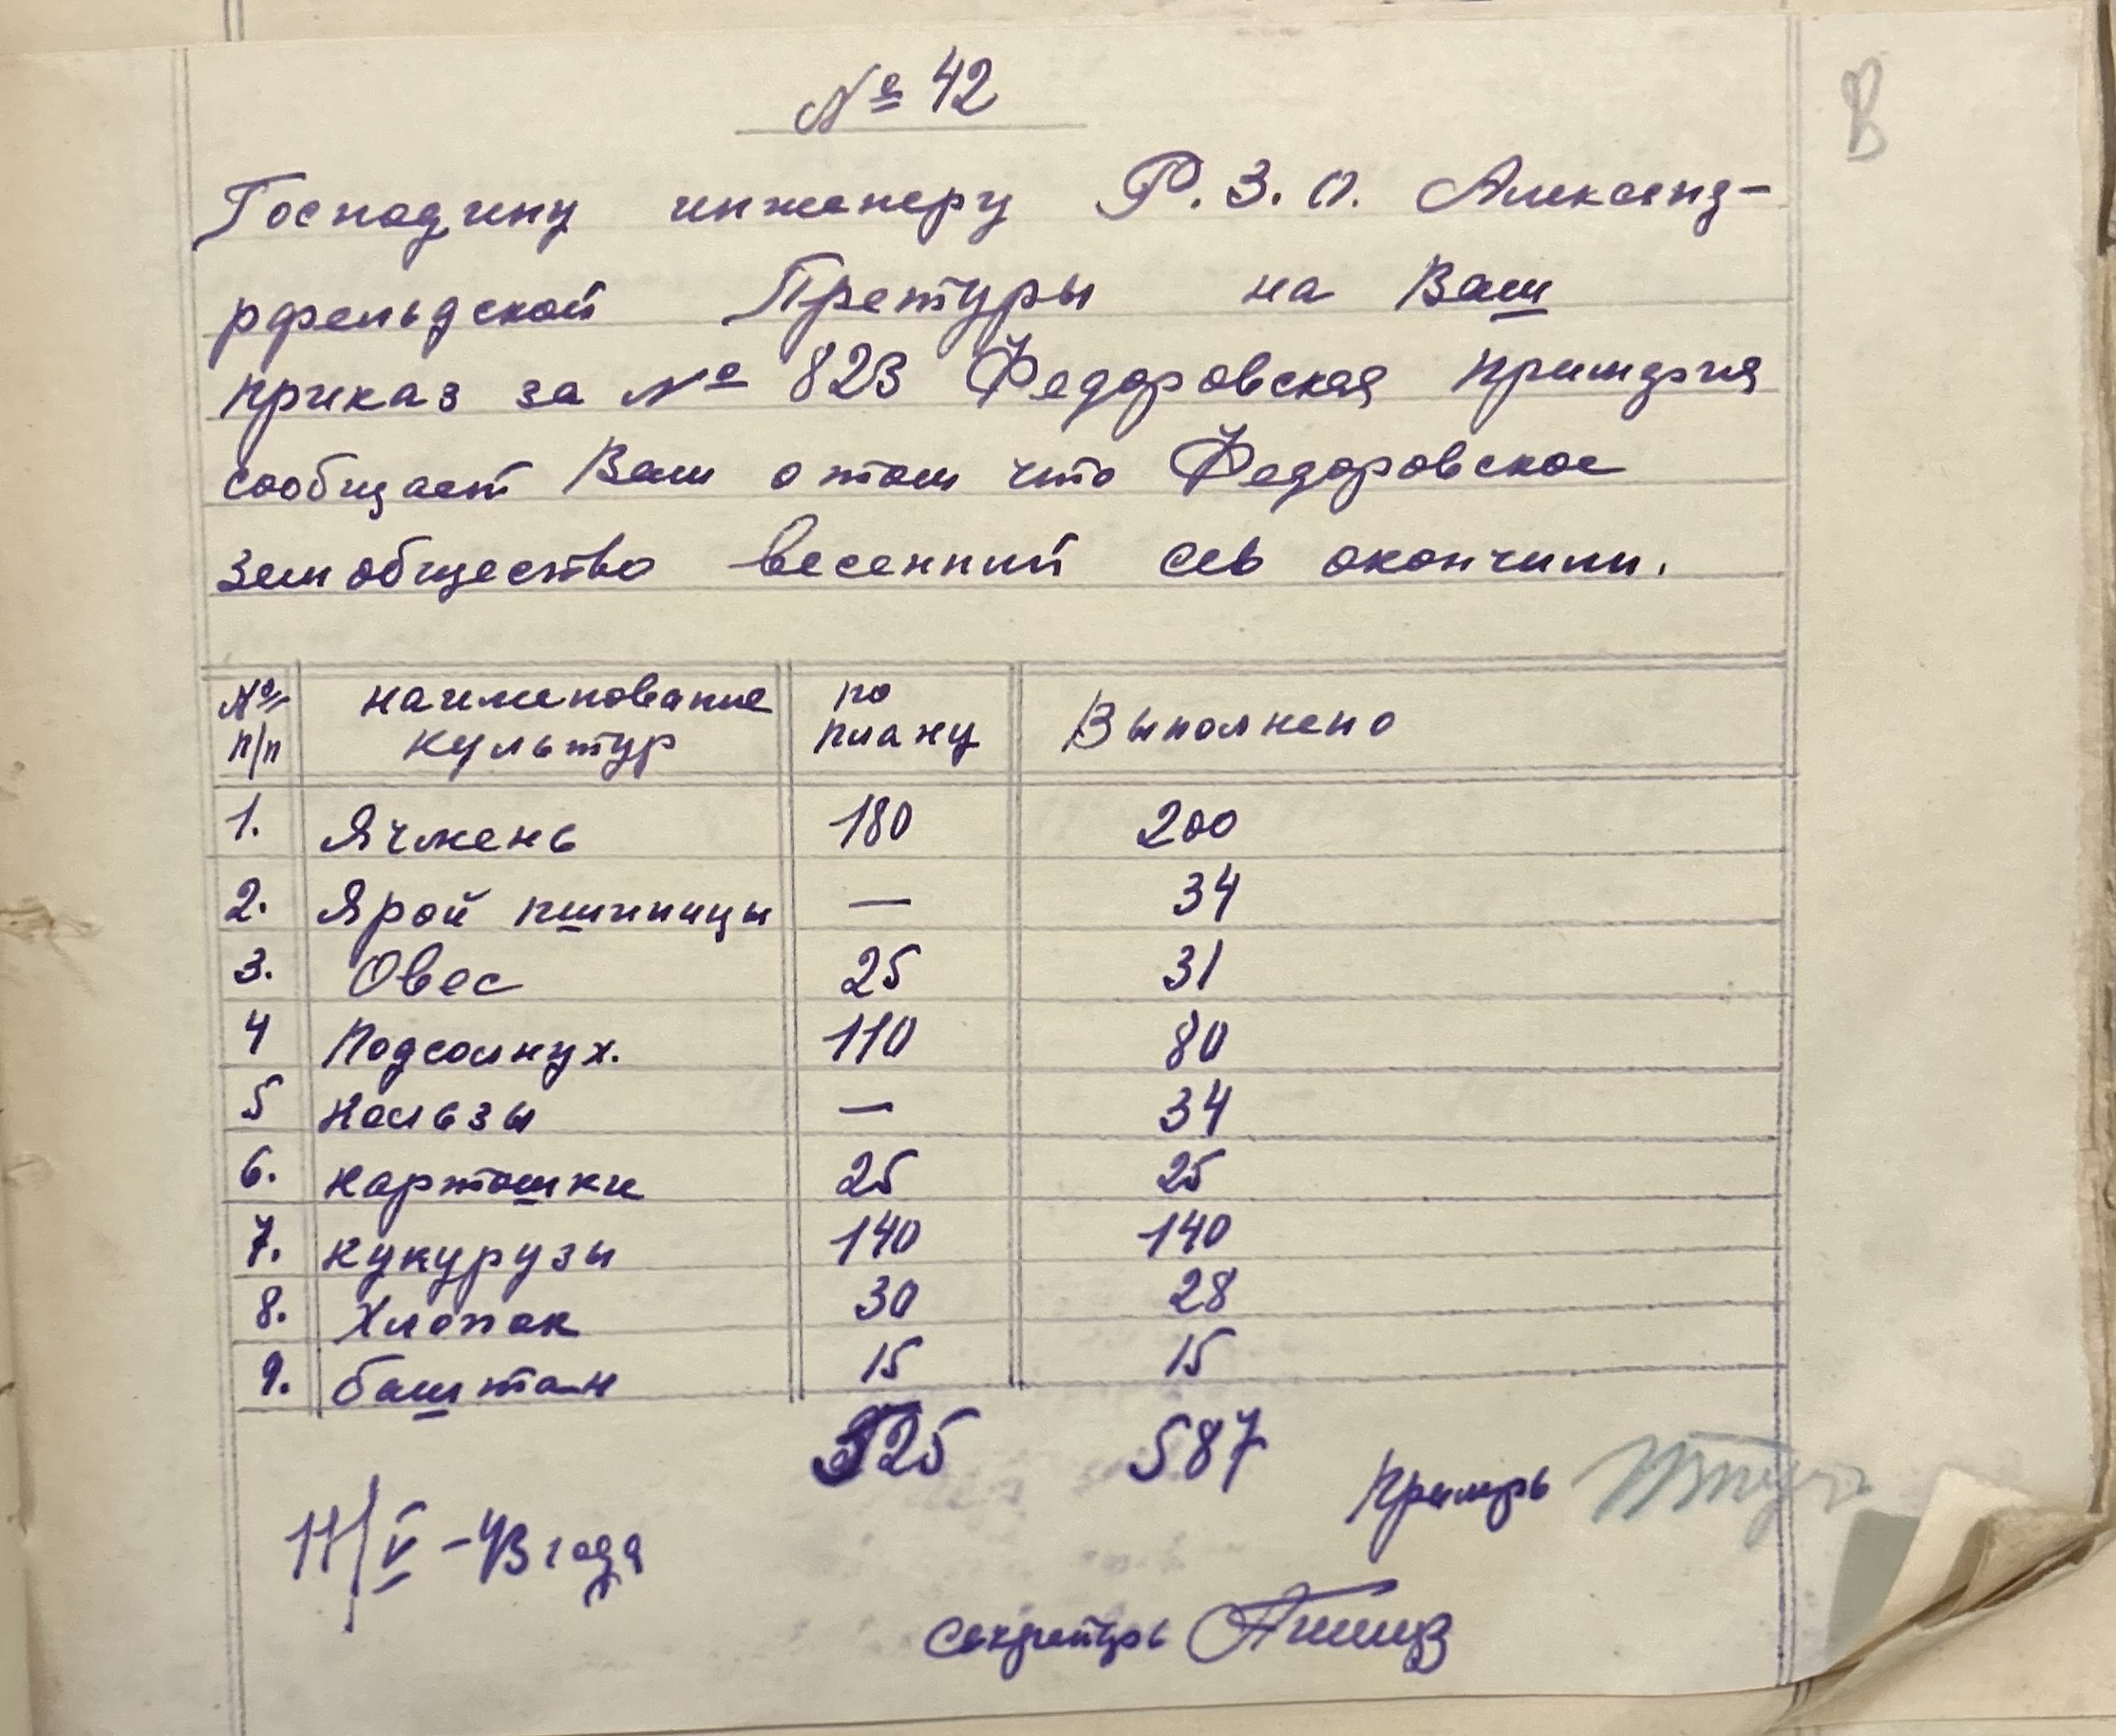 № 42
Господину инженеру Р. З. О. Александ-
рфельдской Претуры на Ваш
приказ за № 823 Федоровская примария
сообщает Вам о том что Федоровское
земобщество весенний сев окончили.
№№ наименование по Выполнено
п/п культур плану
1. Ячмень 180 200
2. Ярой пшиницы — 34
3. Овес 25 31
4 Подсолнух. 110 80
5 Кользы — 34
6. Картошки 25 25
7. Кукурузы 140 140
8. Хлопок 30 28
9. баштан 15 15
525 587
Примарь
11/V – 43 года
Секретарь